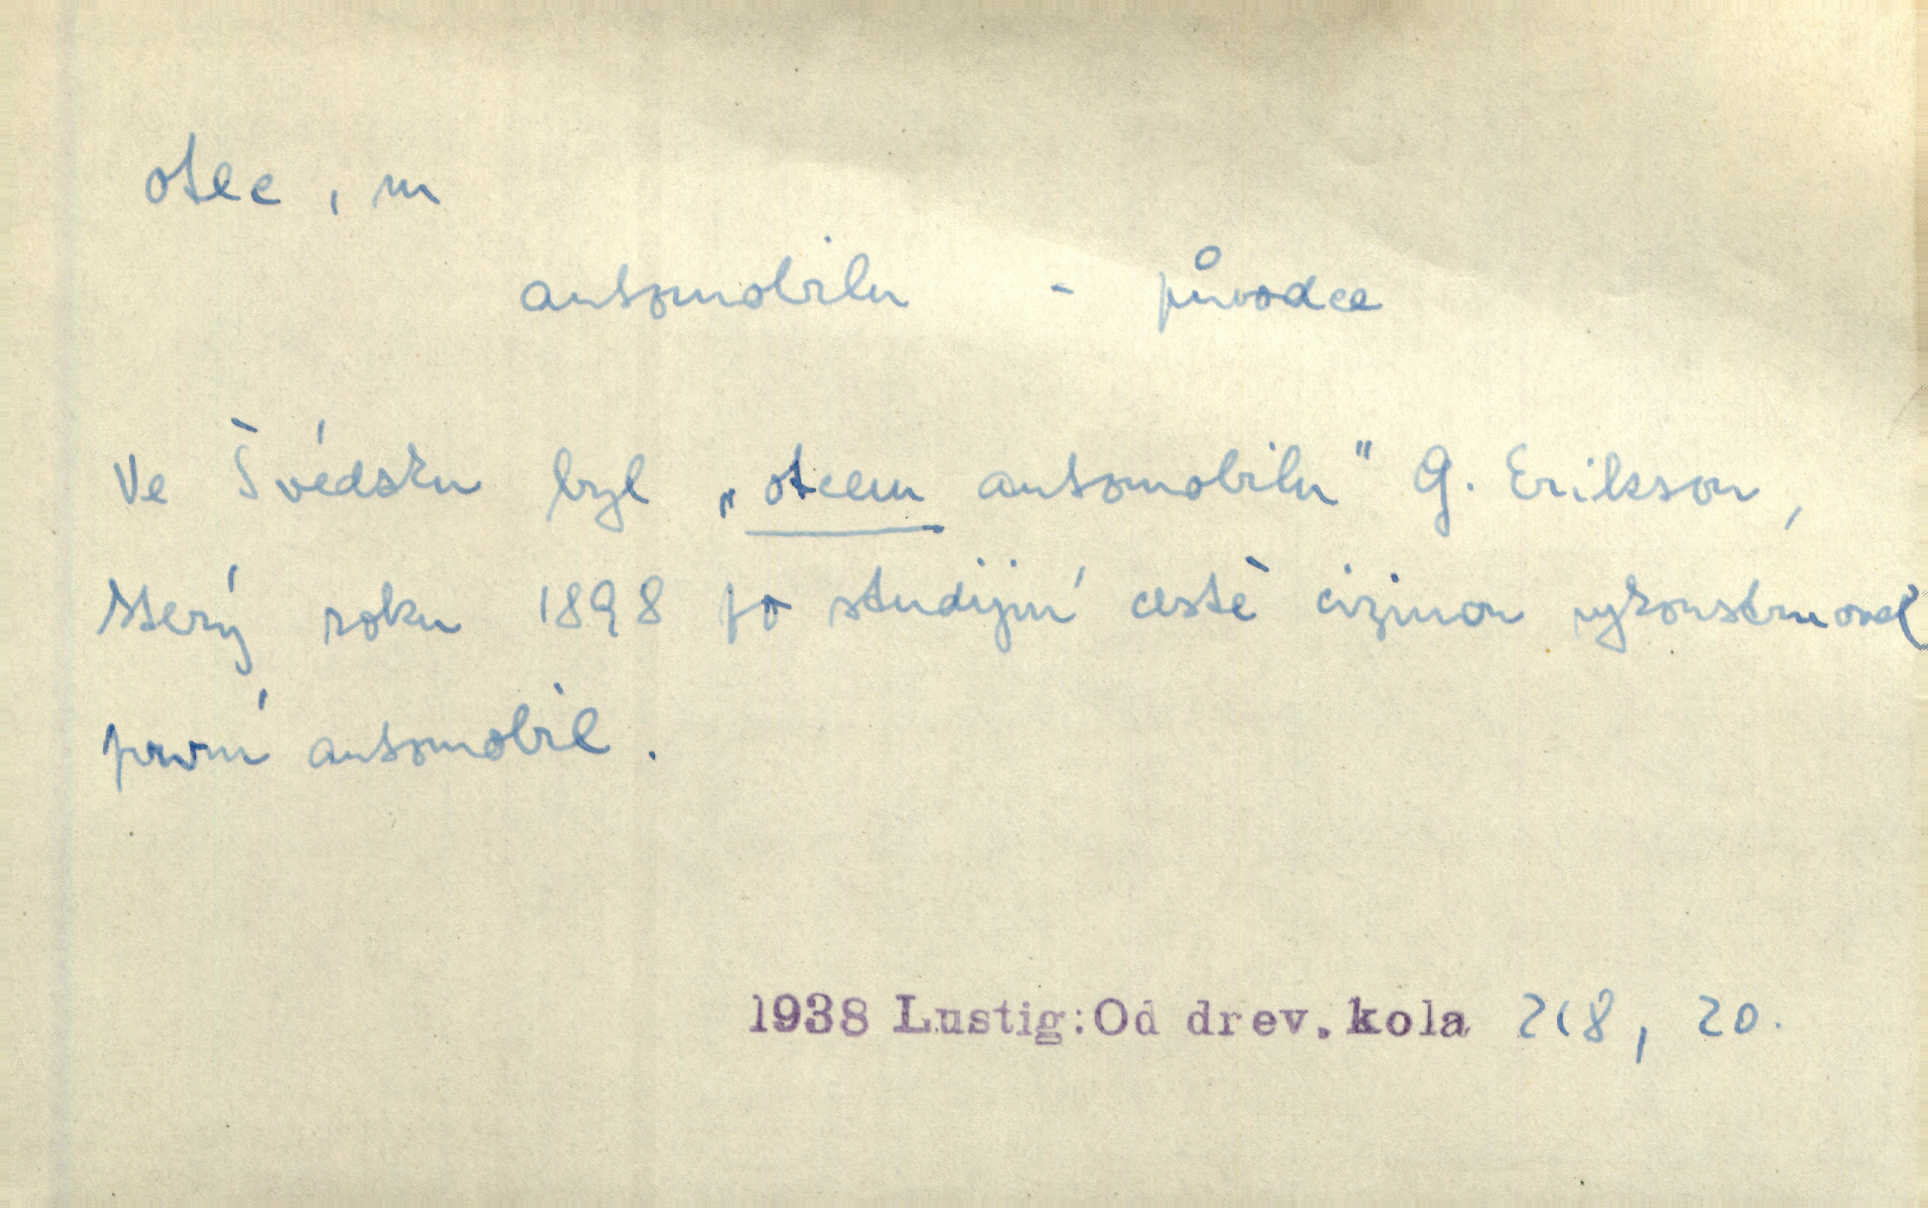 otec, m
automobilu - původce
Ve Švédsku byl „otcem automobilu" G. Erikson,
který roku 1898 po studijní cestě cizinou vykonstruoval
první automobil.
1938 Lustig: Od drev. kola 218, 20.